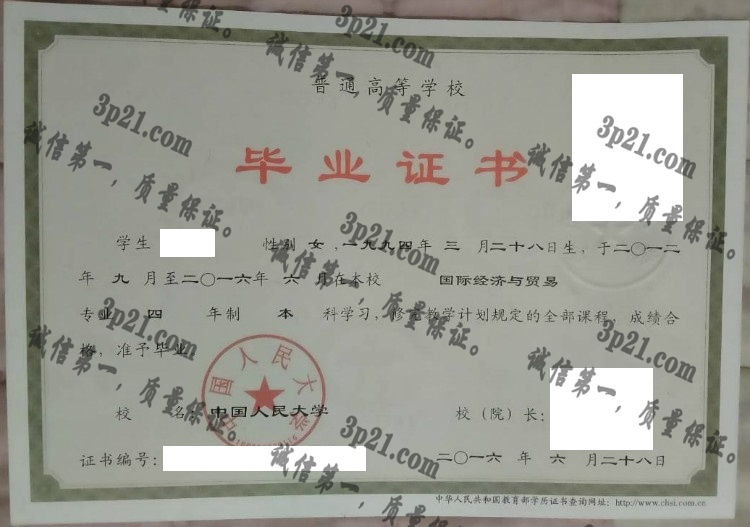 普通高等学校
毕业证书
学生 性别 女，一九九四年 三 月二十八日生，于二〇一二
年 九 月至二〇一六年 六 月在本校 国际经济与贸易
专业 四 年制 本 科学习，修完教学计划规定的全部课程，成绩合
格，准予毕业。
校 名：中国人民大学 校（院）长：
证书编号： 二〇一六 年 六 月二十八日
中华人民共和国教育部学历证书查询网址：http://www.chsi.com.cn
中国人民大学
3p21.com
诚信第一，质量保证。
3p21.com
诚信第一，质量保证。
3p21.com
诚信第一，质量保证。
3p21.com
诚信第一，质量保证。
3p21.com
诚信第一，质量保证。
3p21.com
诚信第一，质量保证。
3p21.com
诚信第一，质量保证。
3p21.com
诚信第一，质量保证。